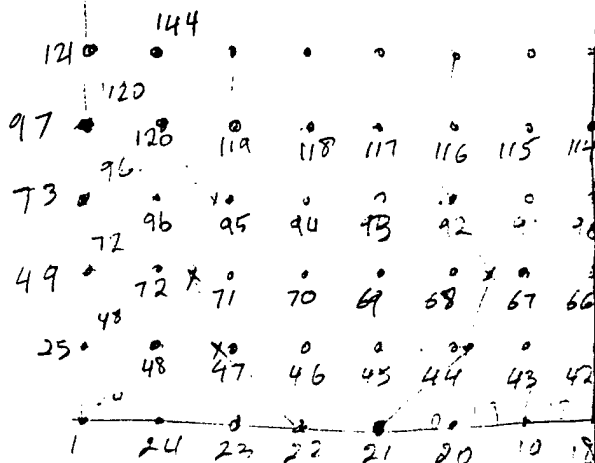 144
121
120
97 120 119 118 117 116 115 114
96
73 96 95 94 93 92 9
72
49 72 71 70 69 68 67 66
48
25 48 47 46 45 44 43 42
1 24 23 22 21 20 19 18